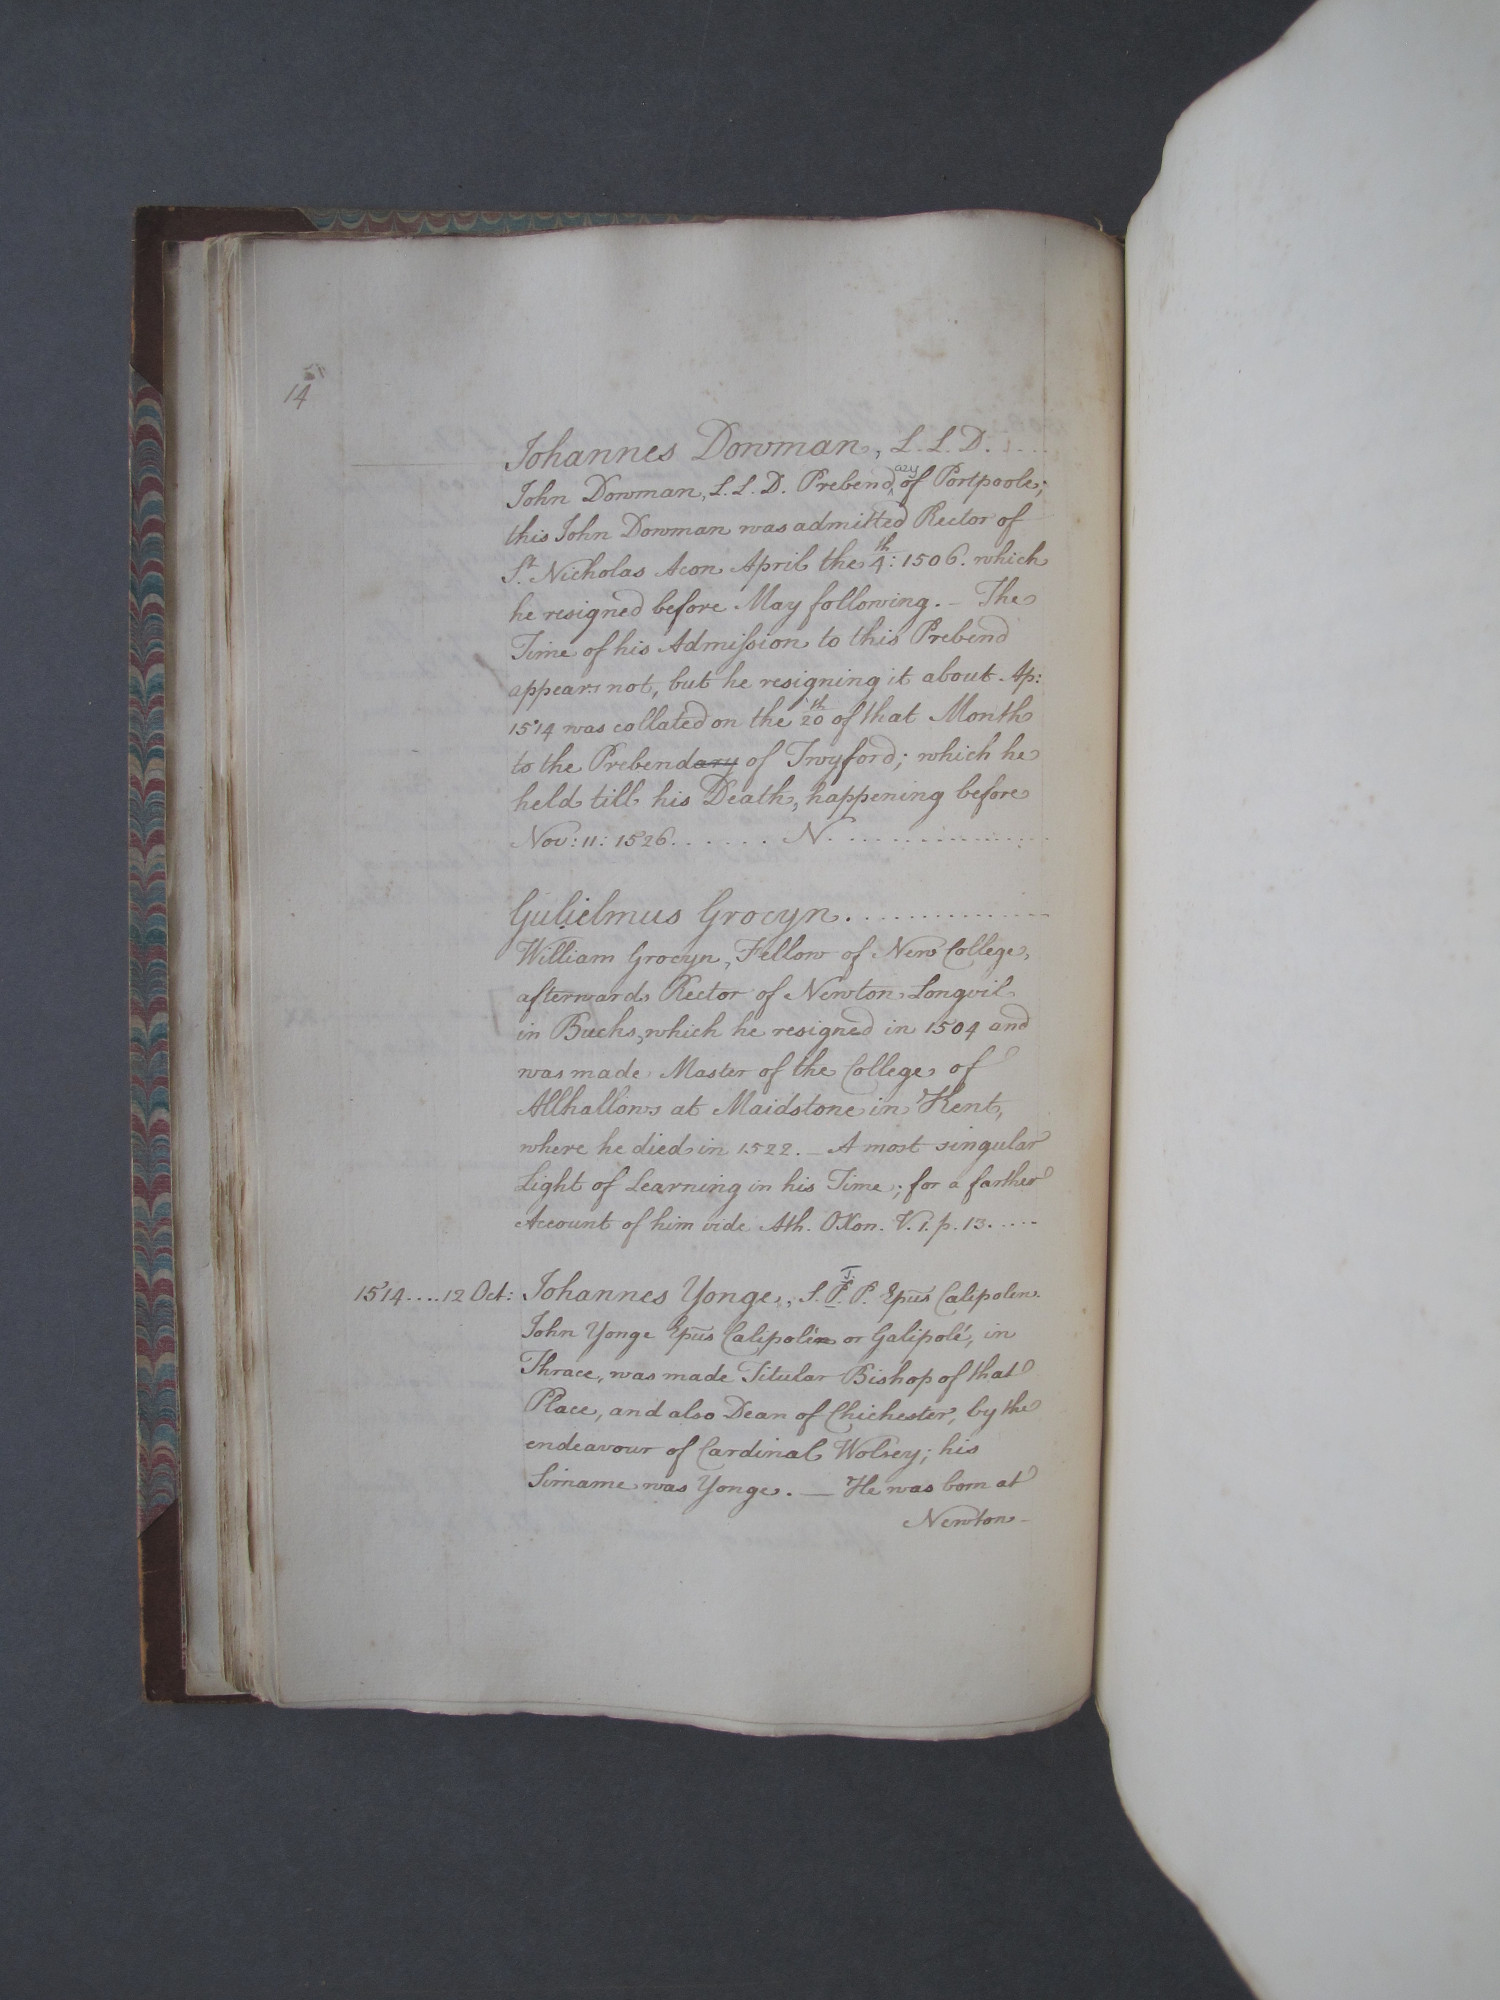 14
Johannes Dowman, L.L.D. . . .
John Dowman, L.L.D. Prebendary of Portpoole;
this John Dowman was admitted Rector of
St. Nicholas Acon April the 4th: 1506. which
he resigned before May following. – The
Time of his Admission to this Prebend
appears not, but he resigning it about Ap:
1514 was collated on the 20th of that Month
to the Prebendary of Twyford; which he
held till his Death, happening before
Nov: 11: 1526. . . . . . N. . . . . . . . . . . . . . .
Gulielmus Grocyn. . . . . . . . . . . . . .
William Grocyn, Fellow of New College,
afterwards Rector of Newton Longvil
in Bucks, which he resigned in 1504 and
was made Master of the College of
Allhallows at Maidstone in Kent,
where he died in 1522. – A most singular
Light of Learning in his Time; for a farther
Account of him vide Ath. OXon. V. 1. p. 13. . . . .
1514 . . . . 12 Oct: Johannes Yonge, S. T. P. Epus Calipolen.
John Yonge Epus Calipolen or Galipole, in
Thrace, was made Titular Bishop of that
Place, and also Dean of Chichester, by the
endeavour of Cardinal Wolsey; his
Sirname was Yonge. — He was born at
Newton –